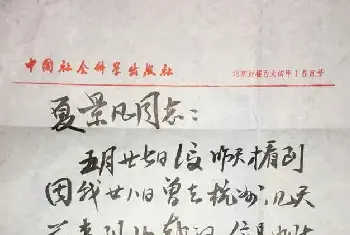 中国社会科学出版社
北京鼓楼西大街甲158号
夏景凡同志：
五月廿七日信 昨天才看到
因我廿八日曾去杭州，几天